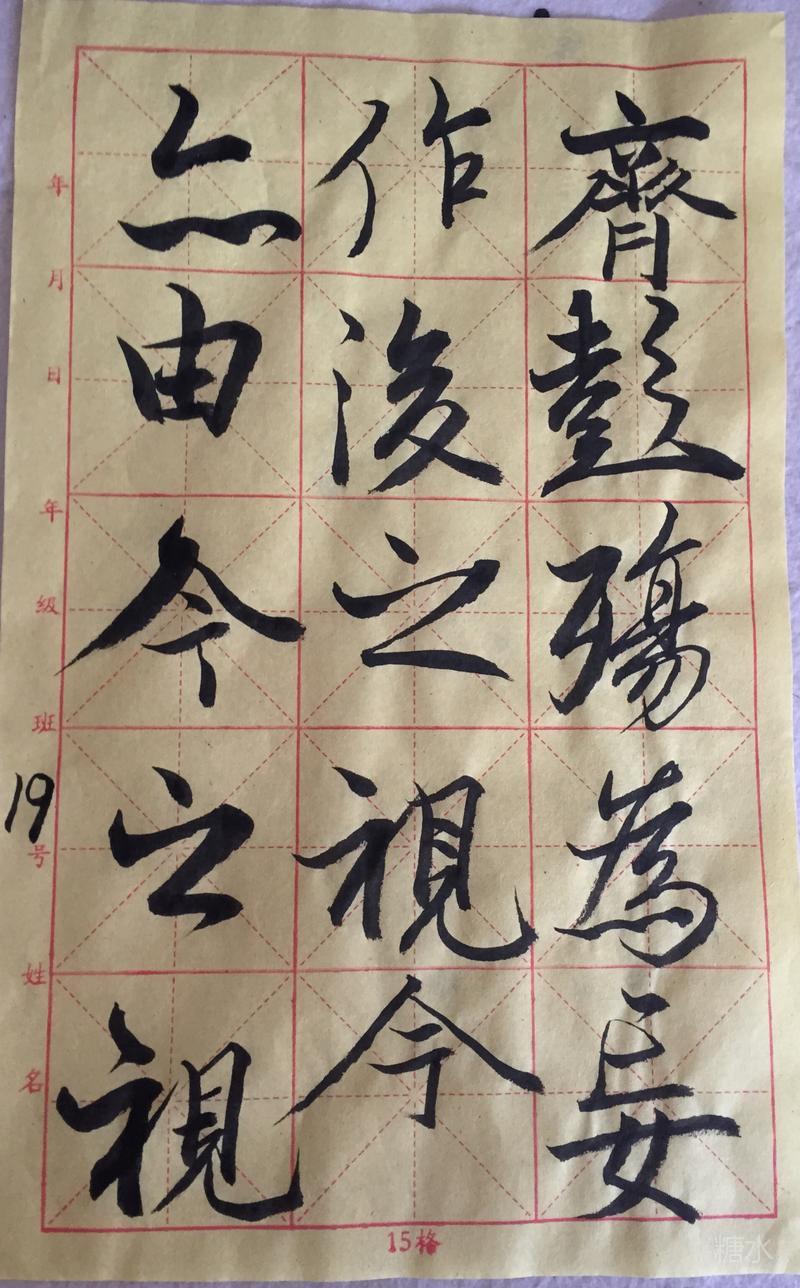 齊彭殤為妄
作後之視今
亦由今之視
年
月
日
年
级
班
19
号
姓
名
15格
糖水